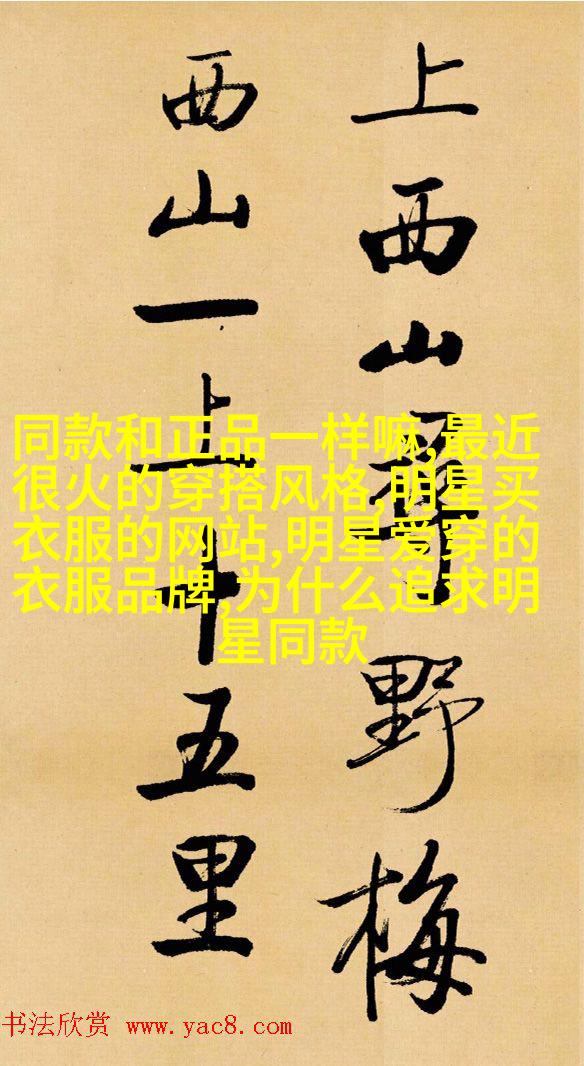 上西山野梅
西山一上十五里
同款和正品一样嘛,最近
很火的穿搭风格,明星买
衣服的网站,明星爱穿的
衣服品牌,为什么追求明
星同款
书法欣赏 www.yac8.com